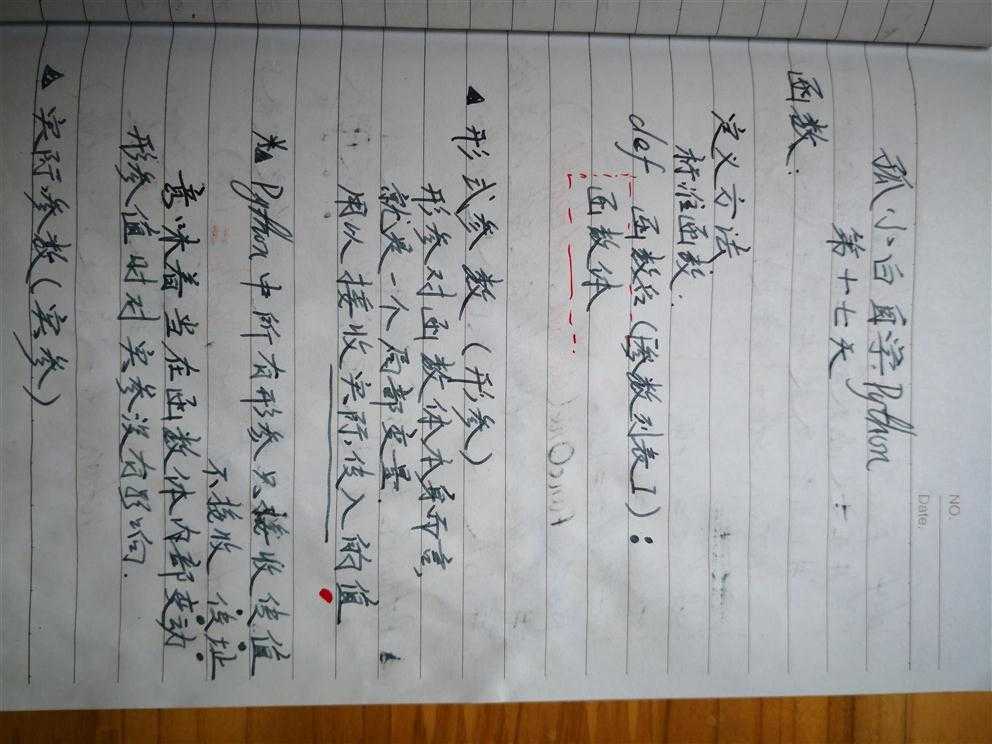 NO.
Date.
孤小白自学Python
第十七天
函数:
定义方法
标准函数:
def 函数名(参数列表):
函数体
▲ 形式参数(形参)
形参对函数体本身而言,
就是一个局部变量.
用以接收实际传入的值
Python中所有形参只接收传值
不接收 传址
意味着当在函数体内部变动
形参值时对实参没有影响.
▲ 实际参数(实参)